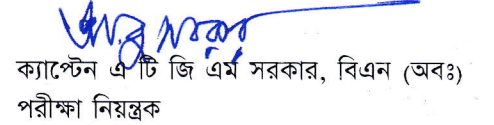 ক্যাপ্টেন এ টি জি এম সরকার, বিএন (অবঃ)
পরীক্ষা নিয়ন্ত্রক